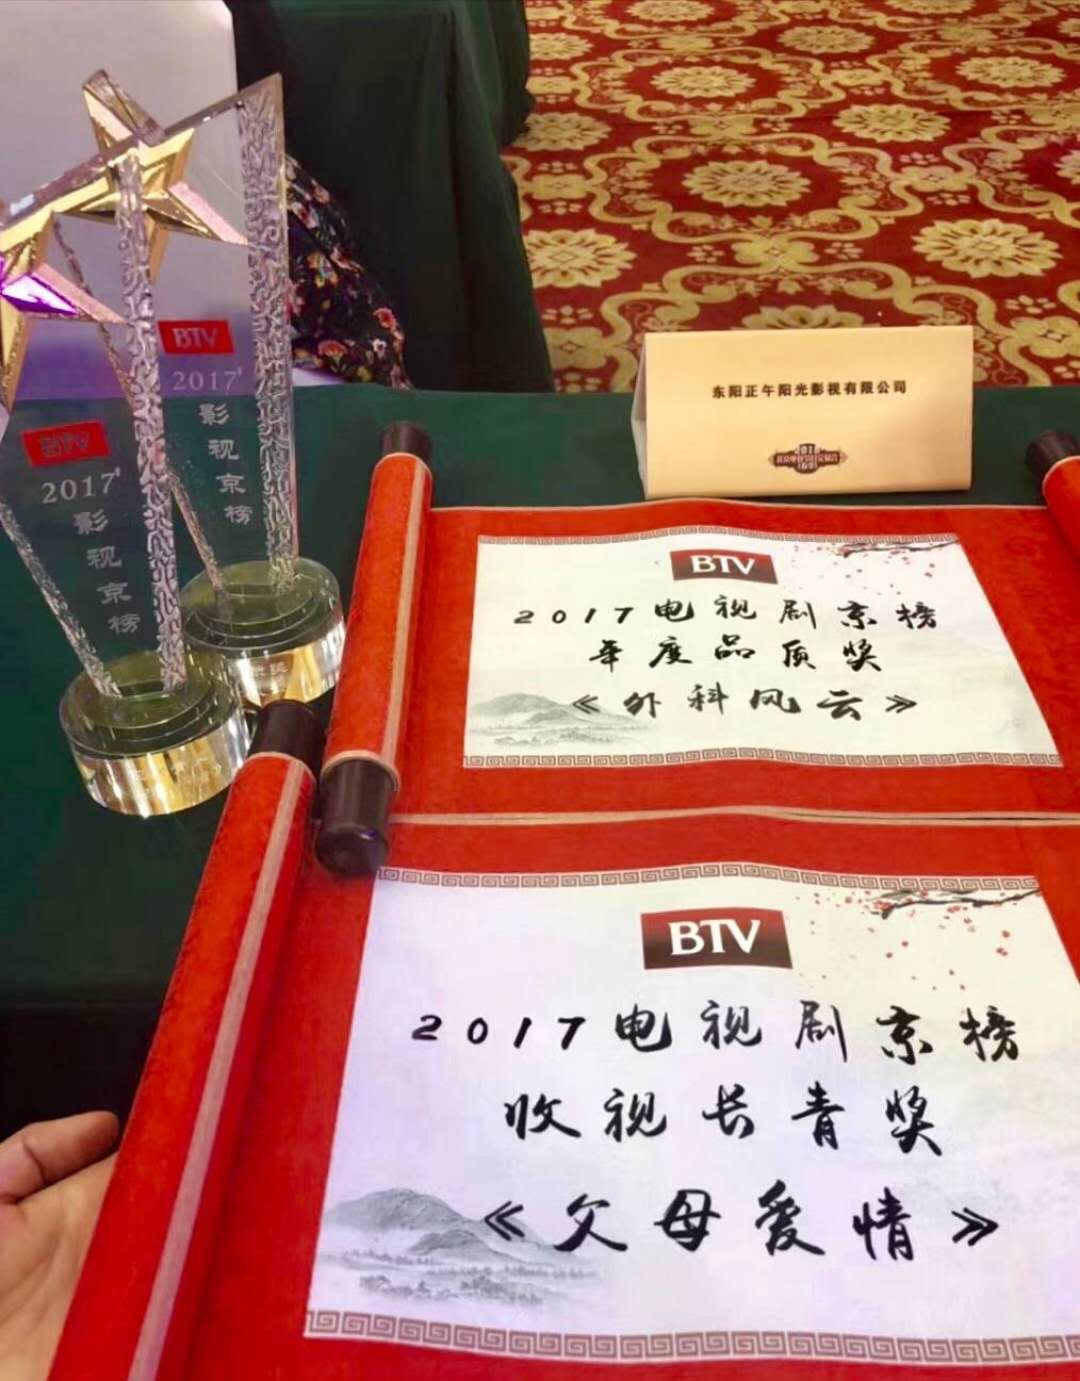 BTV
2017'
影视京榜
BTV
2017'
影视京榜
东阳正午阳光影视有限公司
BTV
2017电视剧京榜
年度品质奖
《外科风云》
BTV
2017电视剧京榜
收视长青奖
《父母爱情》